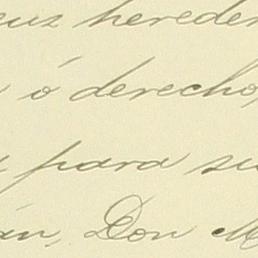 sus hereder
ó derecho,
para su
án, Don M